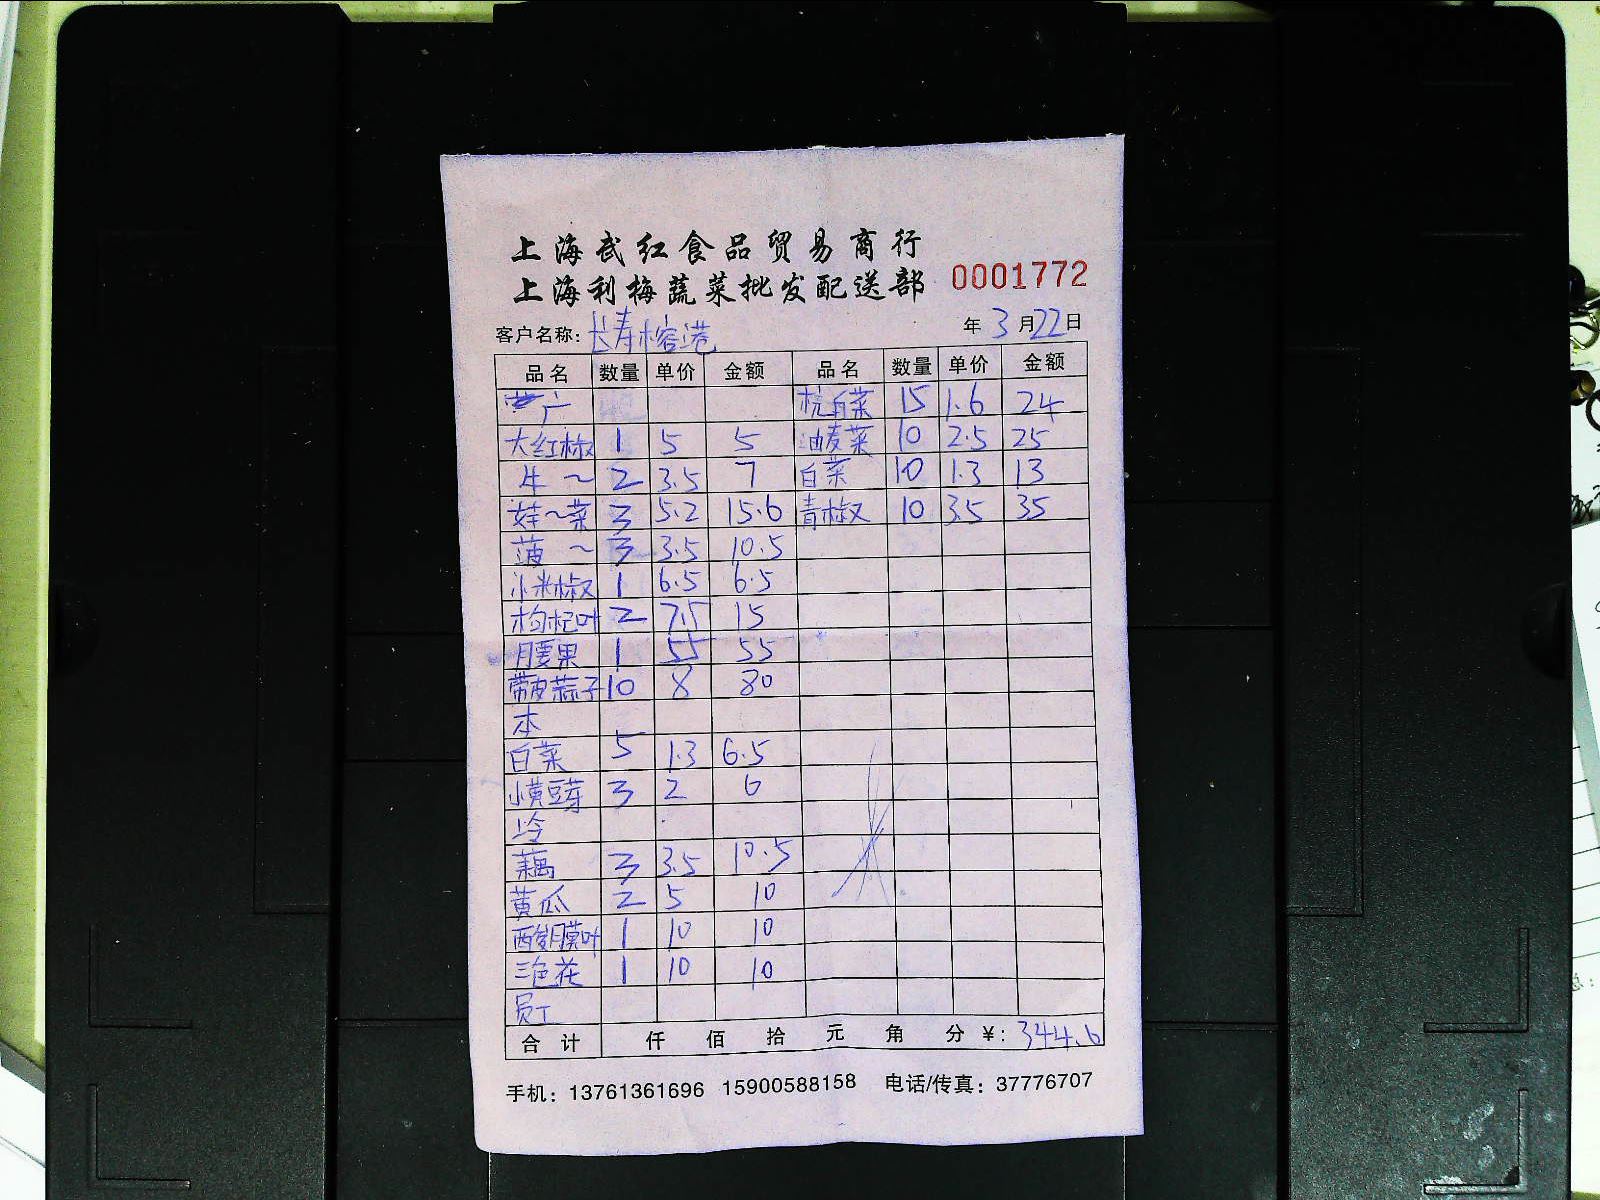 上海武红食品贸易商行
上海利梅蔬菜批发配送部 0001772
客户名称: 长寿榕港 年 3 月 22 日
品名 数量 单价 金额 品名 数量 单价 金额
广 杭白菜 15 1.6 24
大红椒 1 5 5 油麦菜 10 2.5 25
牛~ 2 3.5 7 白菜 10 1.3 13
娃~菜 3 5.2 15.6 青椒 10 3.5 35
菠~ 3 3.5 10.5
小米椒 1 6.5 6.5
枸杞叶 2 7.5 15
腰果 1 55 55
带皮蒜子 10 8 80
本
白菜 5 1.3 6.5
小黄豆芽 3 2 6
冷
藕 3 3.5 10.5
黄瓜 2 5 10
酸膜叶 1 10 10
三色花 1 10 10
员工
合计 仟 佰 拾 元 角 分 ¥: 344.6
手机: 13761361696 15900588158 电话/传真: 37776707